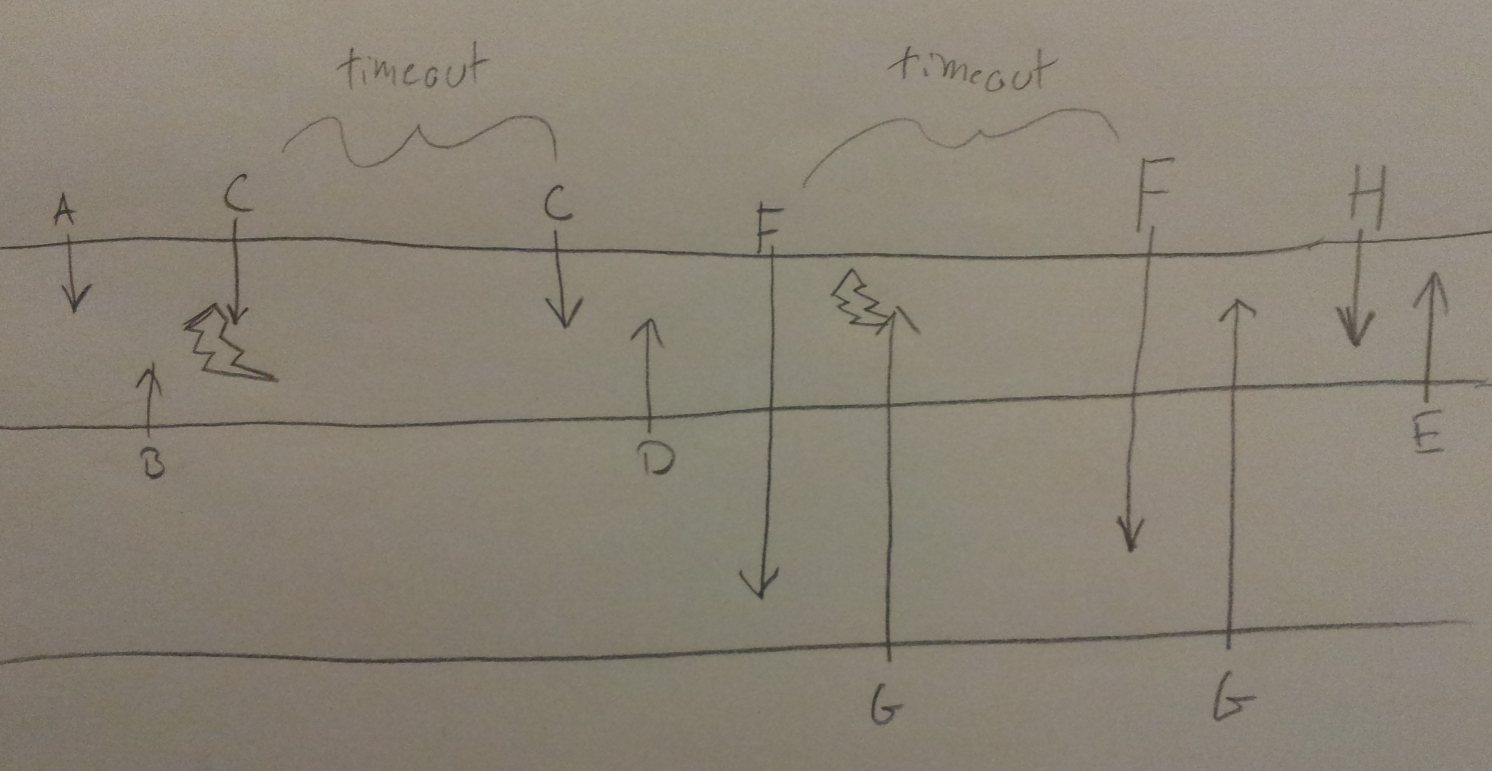 timeout timeout
A C C F F H
B D E
G G